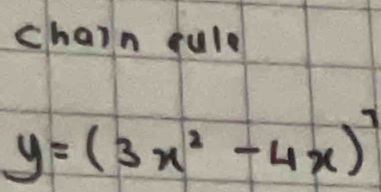 chain rule
y = (3x² - 4x)⁷